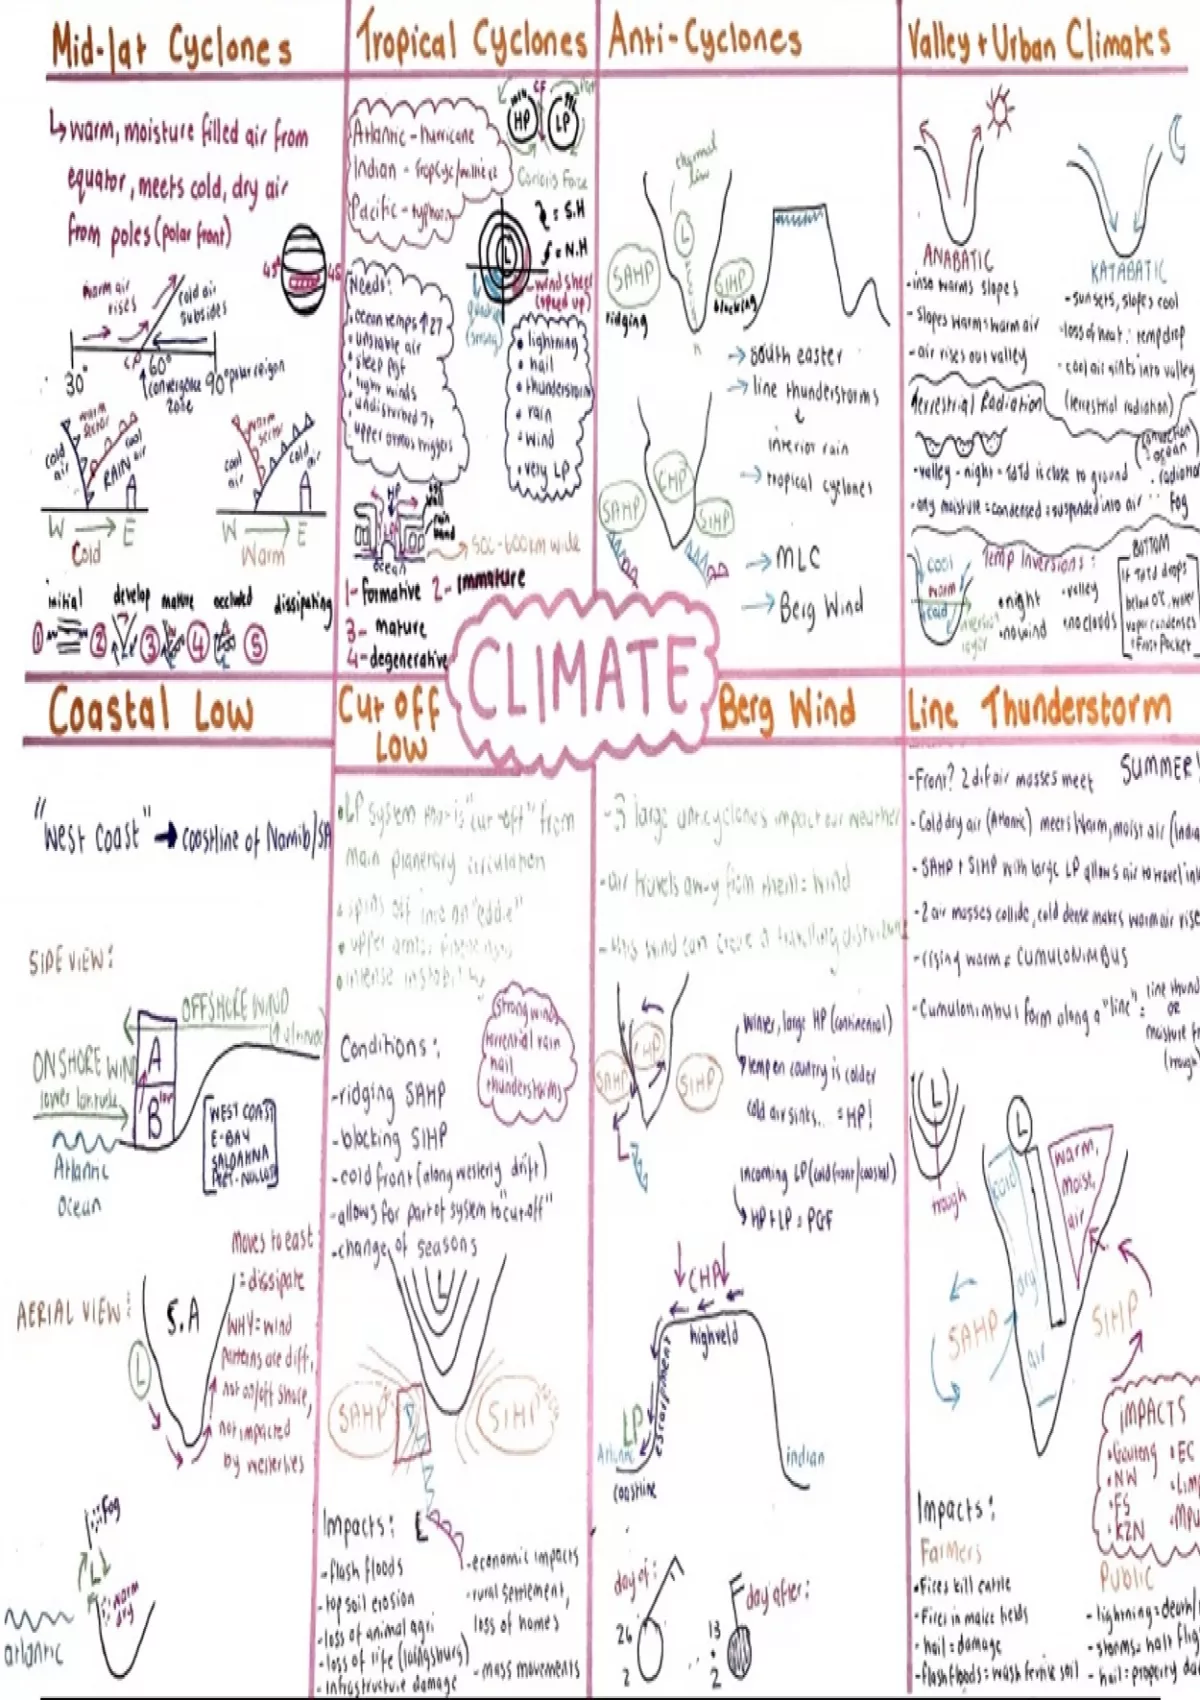 Mid-lat Cyclones
↳ warm, moisture filled air from
equator, meets cold, dry air
from poles (polar front)
45°
45°
warm air
rises
cold air
subsides
30°
60°
90° polar reigon
convergence
zone
warm
sector
cold
air
cool
air
RAIN
W → E
Cold
warm
sector
cool
air
cold
air
W → E
Warm
initial
develop
mature
occluded
dissipating
1 2 3 4 5
Tropical Cyclones
Atlantic - hurricane
Pacific - typhoon
HP
LP
CF
Coriolis Force
= S.H
= N.H
L
wind sheer
(speed up)
(strong)
Needs:
• ocean temps ↑ 27
• unstable air
• steep PGF
• light winds
• lightning
• hail
• thunderstorm
• rain
• wind
• very LP
HP
ocean
→ 500-600km wide
1- formative 2- immature
3- mature
4- degenerative
Anti-Cyclones
thermal
low
L
SAHP
ridging
SIHP
blocking
→ South easter
→ line thunderstorms
↓
interior rain
→ tropical cyclones
CHP
SAHP
SIHP
→ MLC
→ Berg Wind
Valley + Urban Climates
ANABATIC
- inso warms slopes
- slopes warm: warm air
- air rises out valley
KATABATIC
- sun sets, slopes cool
- loss of heat: temp drop
- cool air sinks into valley
(terrestrial radiation)
Terrestrial Radiation
- valley - night = Td is close to ground
- any moisture = condensed = suspended into air
Fog
Temp Inversions:
cool
warm
cold
• night
• no wind
• valley
• no clouds
BOTTOM
If Td drops
below 0°C, water
vapor condenses
= Frost Pocket
CLIMATE
Coastal Low
"West Coast" → coastline of Namib/SA
SIDE VIEW:
OFFSHORE WIND
(↑ altitude)
ONSHORE WIND
lower latitude
A
B
low
Atlantic
Ocean
WEST COAST
E-BAY
SALDAHNA
PORT-NOLLOTH
AERIAL VIEW:
S.A
L
Moves to east
= dissipate
WHY = wind
patterns are diff,
not on/off shore,
not impacted
by westerlies
Fog
L
warm
dry
atlantic
Cut off
Low
• LP system that is "cut-off" from
main planetary circulation
• spins off into an "eddie"
• intense instability
strong winds
torrential rain
hail
thunderstorms
Conditions:
- ridging SAHP
- blocking SIHP
- cold front (along westerly drift)
- allows for part of system to "cut-off"
- change of seasons
L
SAHP
SIHP
L
Impacts:
- flash floods
- top soil erosion
- loss of animal agri
- loss of life (laingsburg)
- infrastructure damage
- economic impacts
- rural settlement,
loss of homes
- mass movements
Berg Wind
- 3 large anticyclones impact our weather
- air travels away from them = wind
- this wind can create a travelling disturbance
CHP
SAHP
SIHP
L
Winter, large HP (continental)
temp on country is colder
cold air sinks.. = HP!
incoming LP (cold front/coastal)
↳ HP + LP = PGF
CHP
highveld
escarpment
LP
Atlantic
coastline
indian
day of:
26
2
day after:
13
2
Line Thunderstorm
SUMMER!
- Front? 2 dif air masses meet
- Cold dry air (Atlantic) meets warm, moist air (India
- SAHP + SIHP with large LP allows air to travel in
- 2 air masses collide, cold dense makes warm air rise
- rising warm = CUMULONIMBUS
- Cumulonimbus form along a "line" =
line thund
OR
moisture f
(trough)
L
trough
L
cold
dry
air
warm,
moist,
air
SAHP
SIHP
IMPACTS
• Gauteng
• EC
• NW
• Lim
• FS
• Mpu
• KZN
Impacts:
Farmers
• Fires kill cattle
• Fires in maize fields
- hail = damage
- flash floods = wash fertile soil
Public
- lightning = death/
- storms = halt flig
- hail = property da